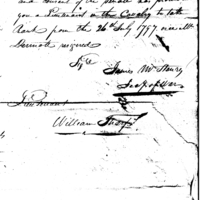 and Consent of the Senate has
you a Lieutenant in the Cavalry to take
Rank from the 26th July 1797 vice
resigned
James McHenry
Secy of War
Lieutenant
William Tharp